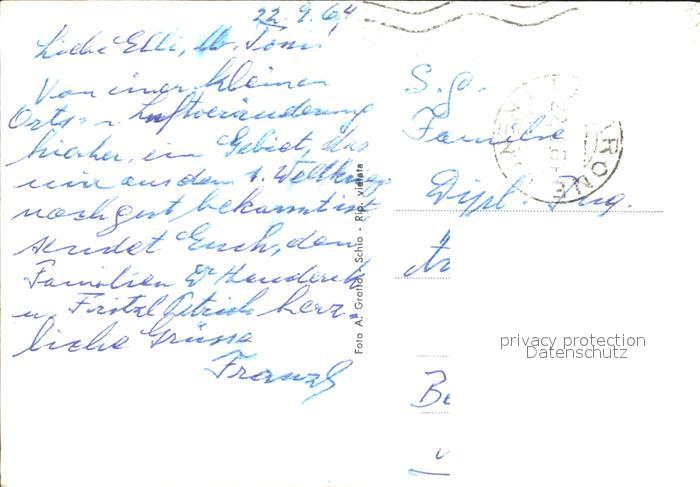 22.9.64
Liebe Elli, lb. Toni!
Von einer kleinen
Orts- u. Luftveränderung
hieher, ein Gebiet, das
mir aus dem 1. Weltkrieg
noch gut bekannt ist
sendet Euch, den
Familien Dr
u. Fritzl herz-
liche Grüsse
Franzl
Foto A. Grotto - Schio - Rip. vietata
S. g.
Familie
Dipl. Ing.
ARONE
Be
privacy protection
Datenschutz